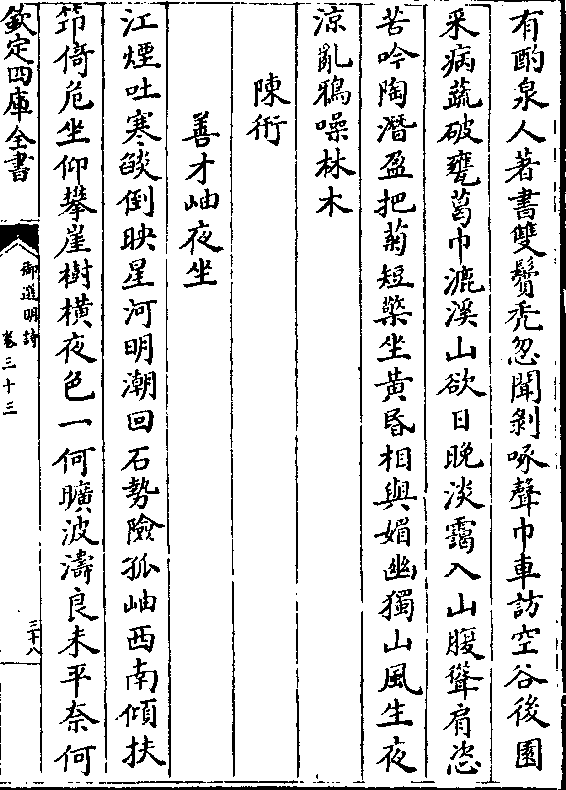 有酌泉人著書雙鬢秃忽聞剝啄聲巾車訪空谷後園
采病蔬破甕葛巾漉溪山欲日晚淡靄入山腹聳肩恣
苦吟陶潛盈把菊短檠坐黄昏相與媚幽獨山風生夜
涼亂鴉噪林木
陳衎
善才岫夜坐
江煙吐寒燄倒映星河明潮回石勢險孤岫西南傾扶
筇倚危坐仰攀崖樹横夜色一何曠波濤良未平奈何
欽定四庫全書
御選明詩
卷三十三
三十八